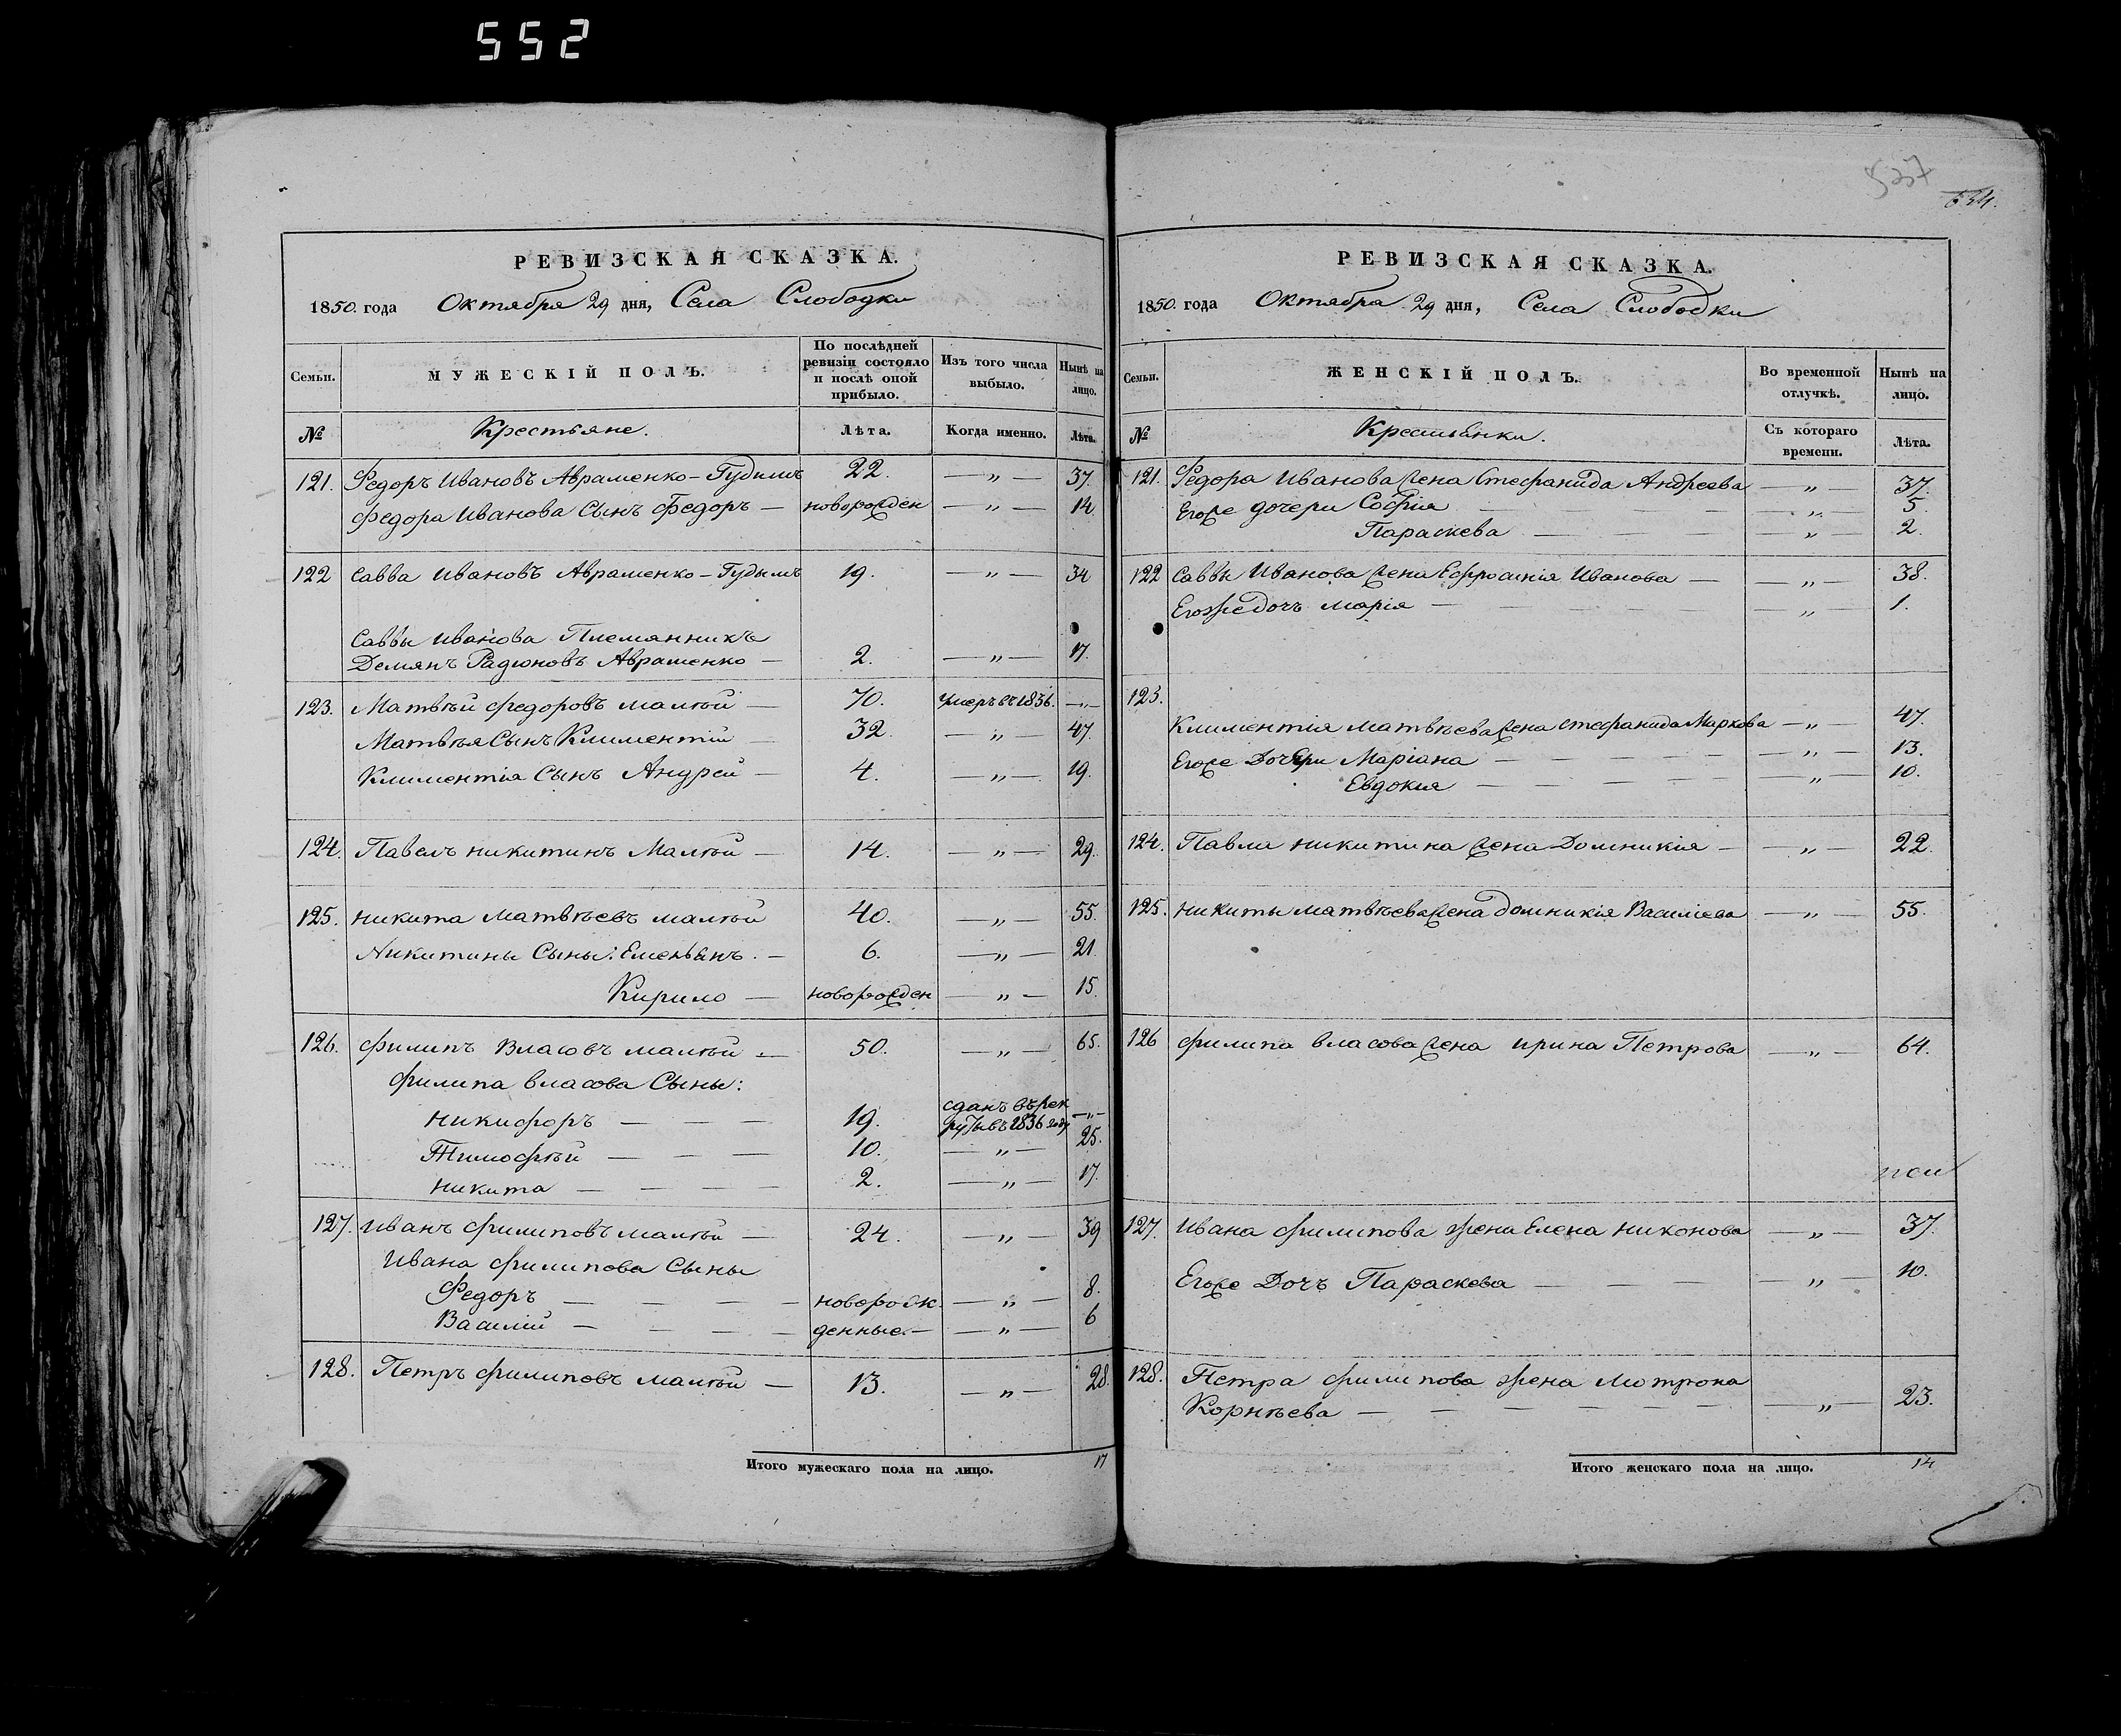 552
РЕВИЗСКАЯ СКАЗКА.
1850. года Октября 29 дня, Села Слободки
Семьи. МУЖЕСКІЙ ПОЛЪ. По послѣдней ревизіи состояло и послѣ оной прибыло. Изъ того числа выбыло. Нынѣ на лицо.
№ Крестьяне. Лѣта. Когда именно. Лѣта.
121. Федоръ Ивановъ Авраменко-Гудымъ 22. — „ — 37.
Федора Иванова Сынъ Федоръ — новорожден — „ — 14
122 Савва Ивановъ Авраменко-Гудымъ 19. — „ — 34
Саввы Иванова Племянникъ
Демянъ Радіоновъ Авраменко — 2. — „ — 17.
123. Матвѣй Федоровъ Малтѣй — 70. умеръ въ 1836. — „ —
Матвѣя Сынъ Климентій — 32. — „ — 47.
Климентія Сынъ Андрей — 4. — „ — 19.
124. Павелъ Никитинъ Малтѣй — 14. — „ — 29.
125. Никита Матвѣевъ Малтѣй 40. — „ — 55.
Никитины Сыны: Емельянъ. — 6. — „ — 21.
Кирило — новорожден — „ — 15.
126. Филипъ Власовъ Малтѣй — 50. — „ — 65.
Филипа Власова Сыны:
Никифоръ — — — 19. сданъ въ рекруты въ 1836 году — „ —
Тимофѣй — — — 10. — „ — 25.
Никита — — — — 2. — „ — 17.
127. Иванъ Филиповъ Малтѣй — 24. — „ — 39
Ивана Филипова Сыны
Федоръ — — — — новорож — „ — 8.
Василій — — — — денные. — — „ — 6
128. Петръ Филиповъ Малтѣй — 13. — „ — 28.
Итого мужескаго пола на лицо. 17
634.
РЕВИЗСКАЯ СКАЗКА.
1850. года Октября 29 дня, Села Слободки
Семьи. ЖЕНСКІЙ ПОЛЪ. Во временной отлучкѣ. Нынѣ на лицо.
№ Крестьянки. Съ котораго времени. Лѣта.
121. Федора Иванова жена Стефанида Андреева — „ — 37.
Егоже дочери София — — — „ — 5.
Параскева — — — — — „ — 2.
122 Саввы Иванова жена Ефросинія Иванова — — „ — 38.
Егоже дочь Марія — — — — „ — 1.
123.
Климентія Матвѣева жена Стефанида Маркова — „ — 47.
Егоже Дочери Маріана — — — — — „ — 13.
Евдокия — — — — — „ — 10.
124. Павла Никитина жена Домникія — — „ — 22.
125. Никиты Матвѣева жена Домникія Василіева — „ — 55.
126 Филипа Власова жена Ирина Петрова — „ — 64.
127. Ивана Филипова жена Елена Никонова — „ — 37.
Егоже Дочь Параскева — — — — „ — 10.
128. Петра Филипова жена Мотрона
Корнѣева — — — — — — — „ — 23.
Итого женскаго пола на лицо. 14